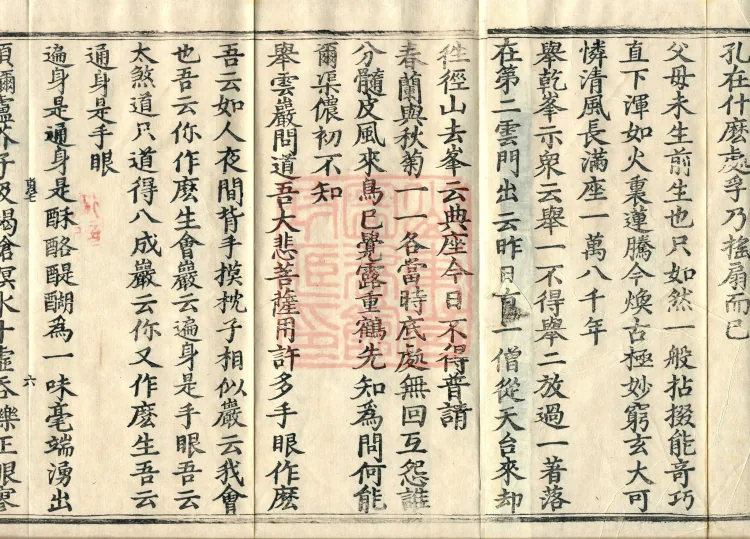 孔在什麽處孚乃搖扇而已
父母未生前生也只如然一般拈掇能竒巧
直下渾如火裏蓮騰今煥古極妙窮玄大可
憐清風長滿座一萬八千年
舉乾峯示衆云舉一不得舉二放過一著落
在第二雲門出云昨日有一僧從天台來却
徃徑山去峯云典座今日不得普請
春蘭與秋菊一一各當時底處無回互怨誰
分髓皮風來鳥已覺露重鶴先知為問何能
爾渠儂初不知
舉雲巖問道吾大悲菩薩用許多手眼作麽
吾云如人夜間背手摸枕子相似巖云我會
也吾云你作麽生會巖云遍身是手眼吾云
太煞道只道得八成巖云你又作麽生吾云
通身是手眼
遍身是通身是酥酪醍醐為一味毫端湧出
六
須彌盧芥子吸竭滄溟水十虛吞爍正眼寥